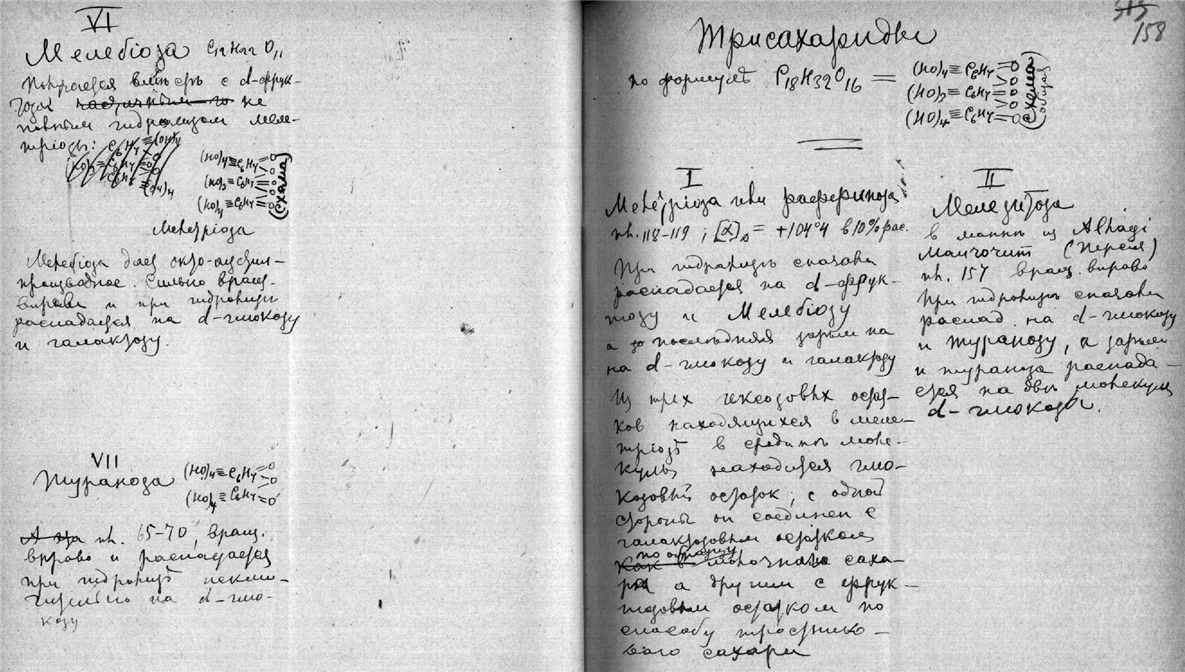 VI
Мелебиоза C12H22O11
Получается вместе с d-фрук-
тозой частичным не
полным гидролизом меле-
триозы: C6H7≡(OH)4
(HO)4≡C6H7=O
(HO)3≡C6H7=O
(HO)4≡C6H7=O
(схема)
Мелетриоза
Мелебиоза дает окто-ацетил-
производное. Сильно вращ.
вправо и при гидролизе
распадается на d-глюкозу
и галактозу.
VII
Тураноза
(HO)4≡C6H7=O
(HO)4≡C6H7=O
пл. 65-70, вращ.
вправо и распадается
при гидролизе исклю-
чительно на d-глю-
козу
515
158
Трисахариды
по формуле C18H32O16 =
(HO)4≡C6H7=O
(HO)3≡C6H7=O
(HO)4≡C6H7=O
(схема общая)
I
Мелетриоза или раффиноза
пл. 118-119; [α]D = +104°4 в 10% рас.
При гидролизе сначала
распадается на d-фрук-
тозу и Мелебиозу
а последняя затем на
на d-глюкозу и галактозу
Из трех гексозовых остат-
ков находящихся в меле-
триозе в средине моле-
кулы находится глю-
козовый остаток; с одной
стороны он соединен с
галактозовым остатком
по образцу
Как в молочнаго саха-
ра а другим с фрук-
тозовым остатком по
способу тростнико-
ваго сахара
II
Мелезитоза
в манне из Alhagi
(Персия)
пл. 157 вращ. вправо
При гидролизе сначала
распад. на d-глюкозу
и Туранозу, а затем
и тураноза распада-
ется на две молекулы
d-глюкозы.